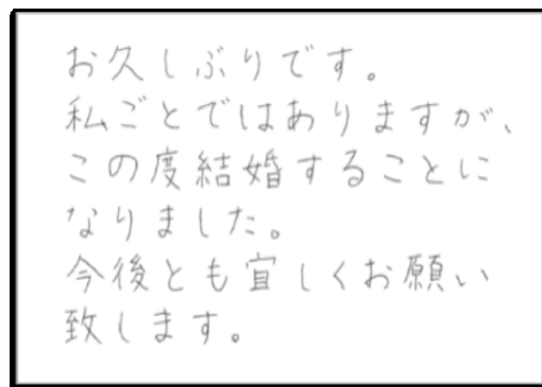 お久しぶりです。
私ごとではありますが、
この度結婚することに
なりました。
今後とも宜しくお願い
致します。